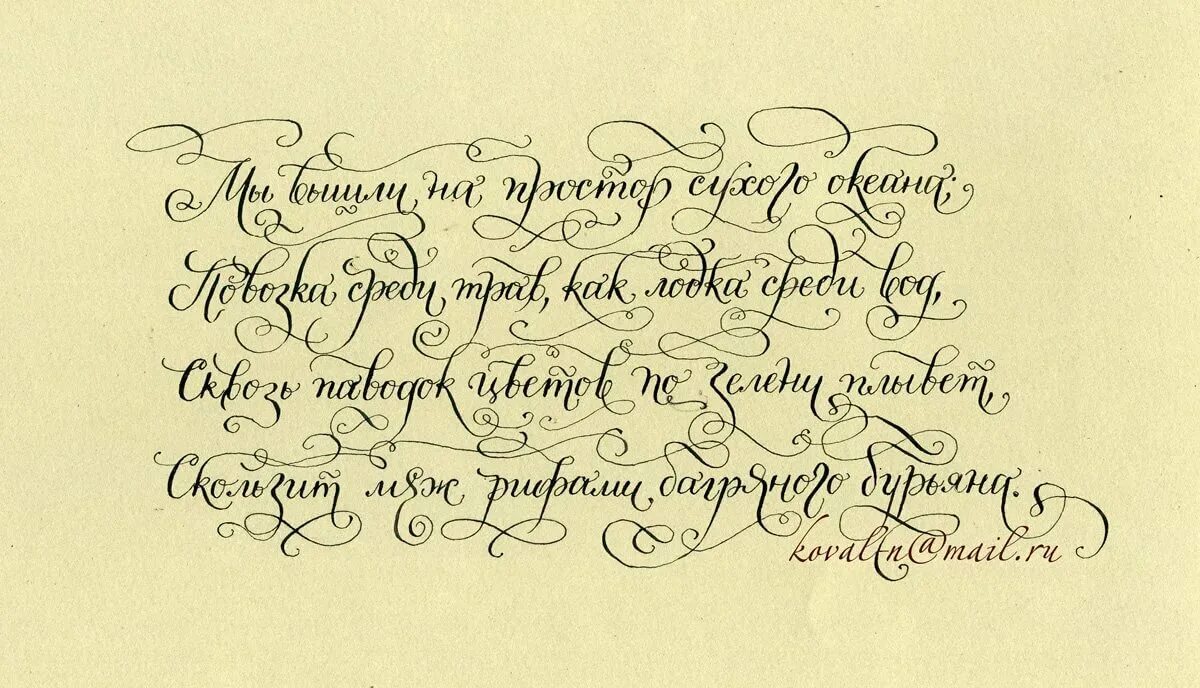 Мы вышли на простор сухого океана;
Повозка среди трав, как лодка среди вод,
Сквозь паводок цветов по зелени плывет,
Скользит меж рифами багряного бурьяна.
koval-n@mail.ru